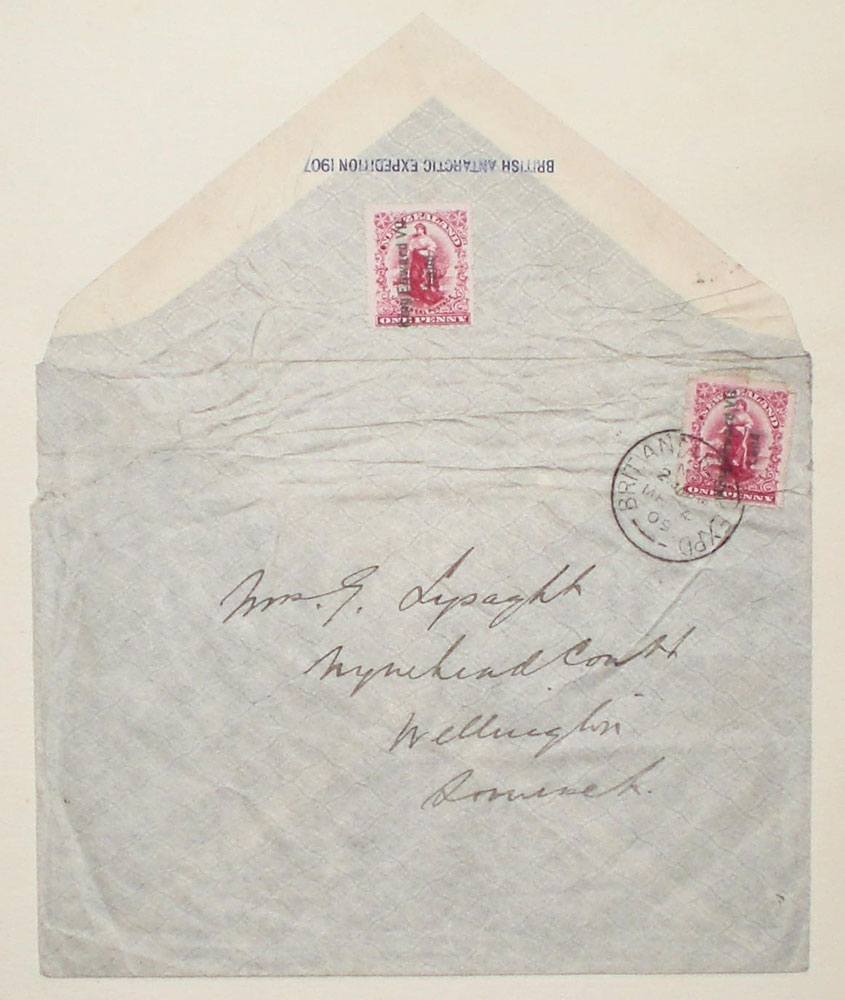 BRITISH ANTARCTIC EXPEDITION 1907
NEW ZEALAND
King Edward VII
Land
ONE PENNY
NEW ZEALAND
Edward VII
Land
ONE PENNY
BRIT. ANT EXPD
09
Mrs. G. Lysaght
Nynehead Court
Wellington
Somerset.